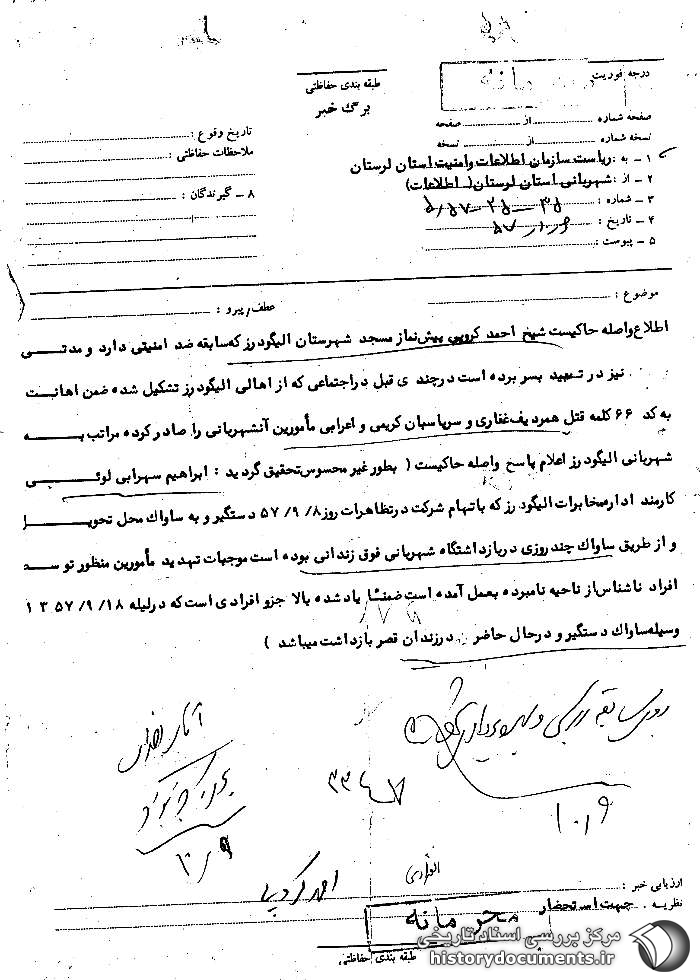 درجه فوریت
محرمانه
طبقه بندی حفاظتی
برگ خبر
صفحه شماره از صفحه
نسخه شماره از نسخه
۱ - به : ریاست سازمان اطلاعات وامنیت استان لرستان
۲ - از : شهربانی استان لرستان ( اطلاعات )
۳ - شماره :
۴ - تاریخ :
۵ - پیوست :
تاریخ وقوع :
ملاحظات حفاظتی :
۸ - گیرندگان :
موضوع : عطف/پیرو :
اطلاع واصله حاکیست شیخ احمد کروبی پیش نماز مسجد شهرستان الیگودرز که سابقه ضد امنیتی دارد و مدتی
نیز در تبعید بسر برده است در چند ی قبل در اجتماعی که از اهالی الیگودرز تشکیل شده ضمن اهانت
به کد ۶۶ کلمه قتل همردیف غفاری و سرپاسبان کریمی و اعرابی مأمورین آنشهربانی را صادر کرده مراتب به
شهربانی الیگودرز اعلام پاسخ واصله حاکیست ( بطور غیر محسوس تحقیق گردید : ابراهیم سهرابی لوئی
کارمند اداره مخابرات الیگودرز که باتهام شرکت در تظاهرات روز ۵۷/۹/۸ دستگیر و به ساواک محل تحویل
و از طریق ساواک چند روزی در بازداشتگاه شهربانی فوق زندانی بوده است موجبات تهدید مأمورین منظور توسط
افراد ناشناس از ناحیه نامبرده بعمل آمده است ضمناً یاد شده بالا جزو افرادی است که در لیله ۱۳۵۷/۹/۱۸
وسیله ساواک دستگیر و در حال حاضر در زندان قصر بازداشت میباشد )
۹ / ۱۰
احمد کروبی
ارزیابی خبر :
نظریه : جهت استحضار
محرمانه
طبقه بندی حفاظتی
مرکز بررسی اسناد تاریخی
historydocuments.ir